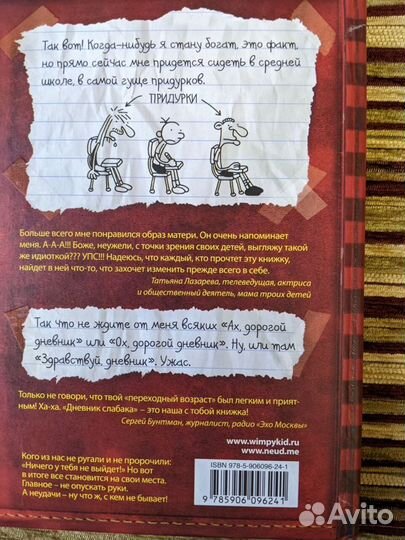 Так вот! Когда-нибудь я стану богат, это факт,
но прямо сейчас мне придется сидеть в средней
школе, в самой гуще придурков.
ПРИДУРКИ
Больше всего мне понравился образ матери. Он очень напоминает
меня. А-А-А!!! Боже, неужели, с точки зрения своих детей, выгляжу такой
же идиоткой??? УПС!!! Надеюсь, что каждый, кто прочтет эту книжку,
найдет в ней что-то, что захочет изменить прежде всего в себе.
Татьяна Лазарева, телеведущая, актриса
и общественный деятель, мама троих детей
Так что не ждите от меня всяких «Ах, дорогой
дневник» или «Ох, дорогой дневник». Ну, или там
«Здравствуй, дневник». Ужас.
Только не говори, что твой «переходный возраст» был легким и прият-
ным! Ха-ха. «Дневник слабака» – это наша с тобой книжка!
Сергей Бунтман, журналист, радио «Эхо Москвы»
www.wimpykid.ru
www.neud.me
Кого из нас не ругали и не пророчили:
«Ничего у тебя не выйдет!» Но вот
в итоге все становится на свои места.
Главное – не опускать руки.
А неудачи – ну что ж, с кем не бывает!
ISBN 978-5-906096-24-1
9 785906 096241
Avito